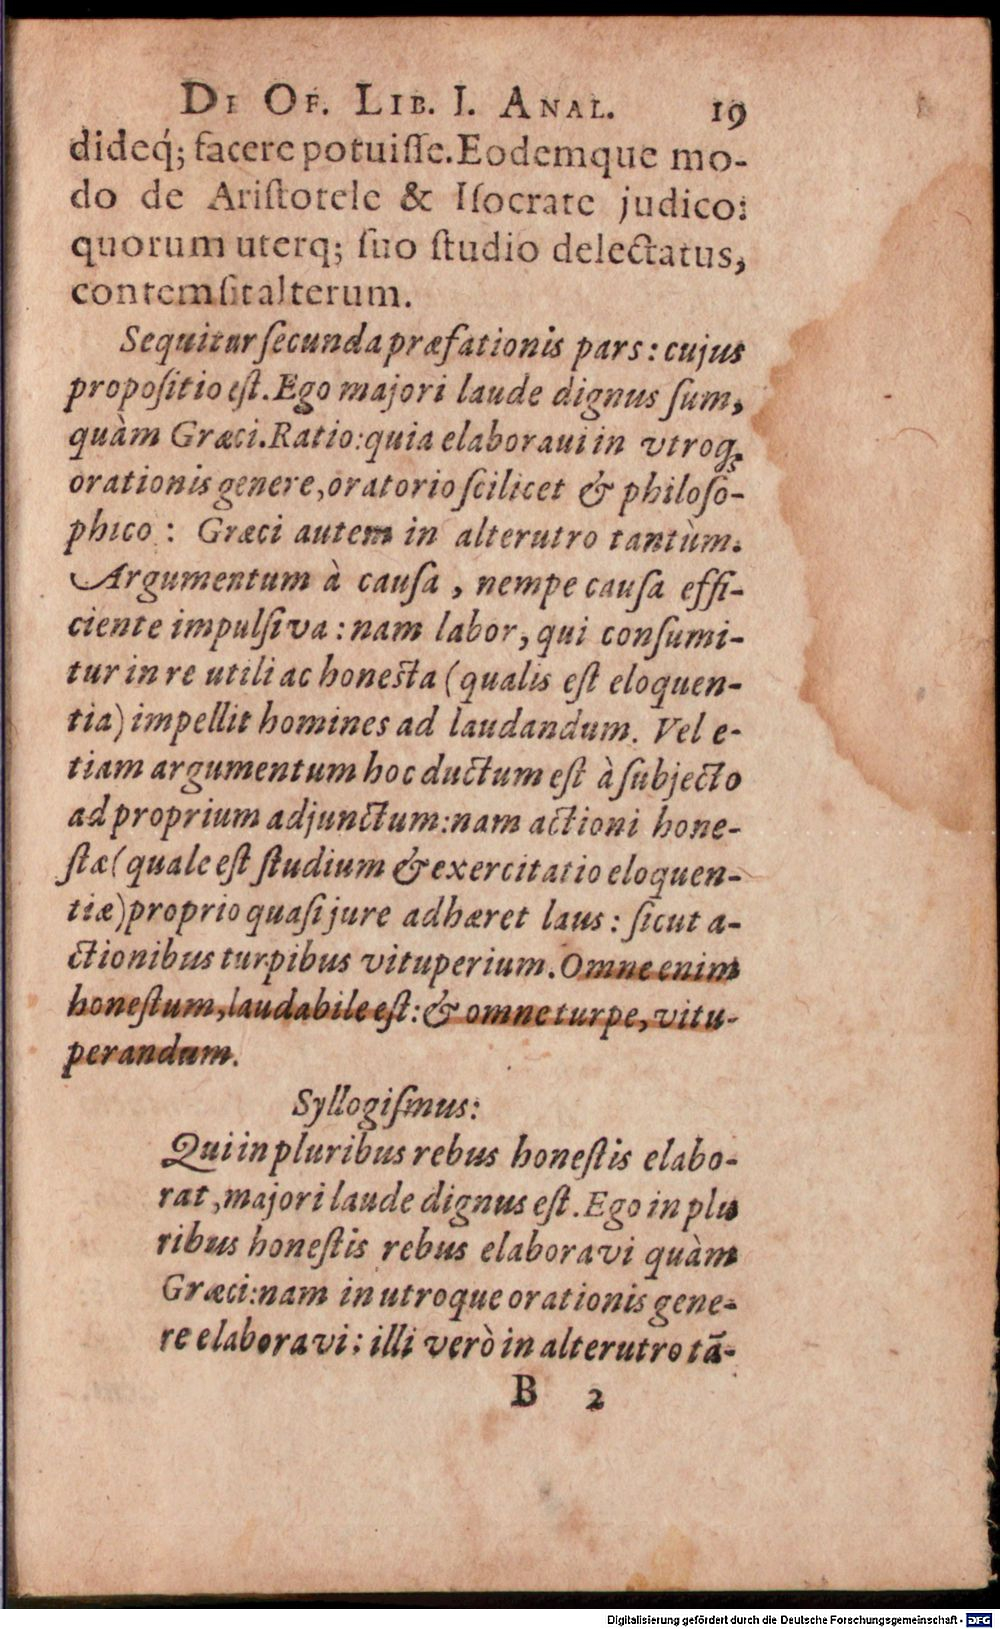 De Of. Lib. I. Anal. 19
dideq́; facere potuiſſe. Eodemque mo-
do de Ariſtotele & Iſocrate judico:
quorum uterq; ſuo ſtudio delectatus,
contemſit alterum.
Sequitur ſecunda præfationis pars: cujus
propoſitio eſt. Ego majori laude dignus ſum,
quàm Græci. Ratio: quia elaboraui in vtroq;
orationis genere, oratorio ſcilicet & philoſo-
phico: Græci autem in alterutro tantùm.
Argumentum à cauſa, nempe cauſa effi-
ciente impulſiva: nam labor, qui conſumi-
tur in re utili ac honesta (qualis eſt eloquen-
tia) impellit homines ad laudandum. Vel e-
tiam argumentum hoc ductum eſt à ſubjecto
ad proprium adjunctum: nam actioni hone-
ſtæ (quale eſt ſtudium & exercitatio eloquen-
tiæ) proprio quaſi jure adhæret laus: ſicut a-
ctionibus turpibus vituperium. Omne enim
honeſtum, laudabile eſt: & omne turpe, vitu-
perandum.
Syllogiſmus:
Qui in pluribus rebus honeſtis elabo-
rat, majori laude dignus eſt. Ego in plu
ribus honeſtis rebus elaboravi quàm
Græci: nam in utroque orationis gene-
re elaboravi: illi verò in alterutro tā-
B 2
Digitalisierung gefördert durch die Deutsche Forschungsgemeinschaft - DFG